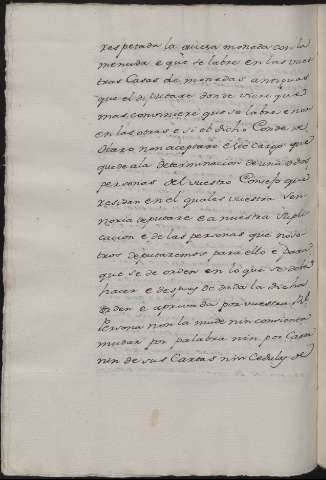 respetada la nueva moneda con la
menuda e que se labre en las vues
tras Casas de monedas antiguas
que el diputare donde viere que
mas conviniere que se labre e non
en las otras e si el dicho Conde
non aceptare el de cargo que
quede a la determinacion de una o dos
personas del vuestro Consejo que
residan en el quales vuestra Sen
noria deputare e a nuestra supli
cacion e de las personas que noso
tros deputaremos para ello e para
que se de orden en lo que se debe
hacer e despues de dada la dicha
orden e aprovada por vuestra Rl
Persona non la mude nin consienta
mudar por palabra nin por Carta
nin de sus Cartas nin Cedulas de